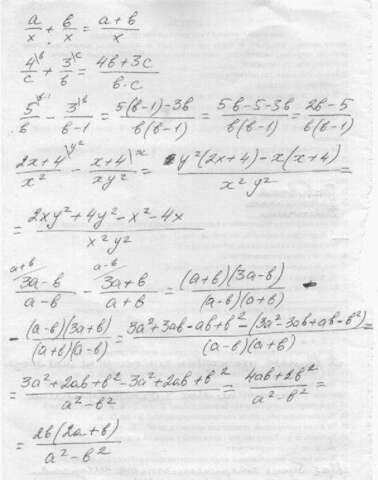 a/x + b/x = (a+b)/x
4\b/c + 3\c/b = (4b+3c)/(b·c)
5\b-1/b - 3\b/(b-1) = (5(b-1)-3b)/(b(b-1)) = (5b-5-3b)/(b(b-1)) = (2b-5)/(b(b-1))
(2x+4)\y²/x² - (x+4)\x/(xy²) = (y²(2x+4)-x(x+4))/(x²y²) =
= (2xy²+4y²-x²-4x)/(x²y²)
a+b/(3a-b)/(a-b) - a-b/(3a+b)/(a+b) = ((a+b)(3a-b))/((a-b)(a+b)) -
- ((a-b)(3a+b))/((a+b)(a-b)) = (3a²+3ab-ab+b²-(3a²-3ab+ab-b²))/((a-b)(a+b)) =
= (3a²+2ab+b²-3a²+2ab+b²)/(a²-b²) = (4ab+2b²)/(a²-b²) =
= (2b(2a+b))/(a²-b²)